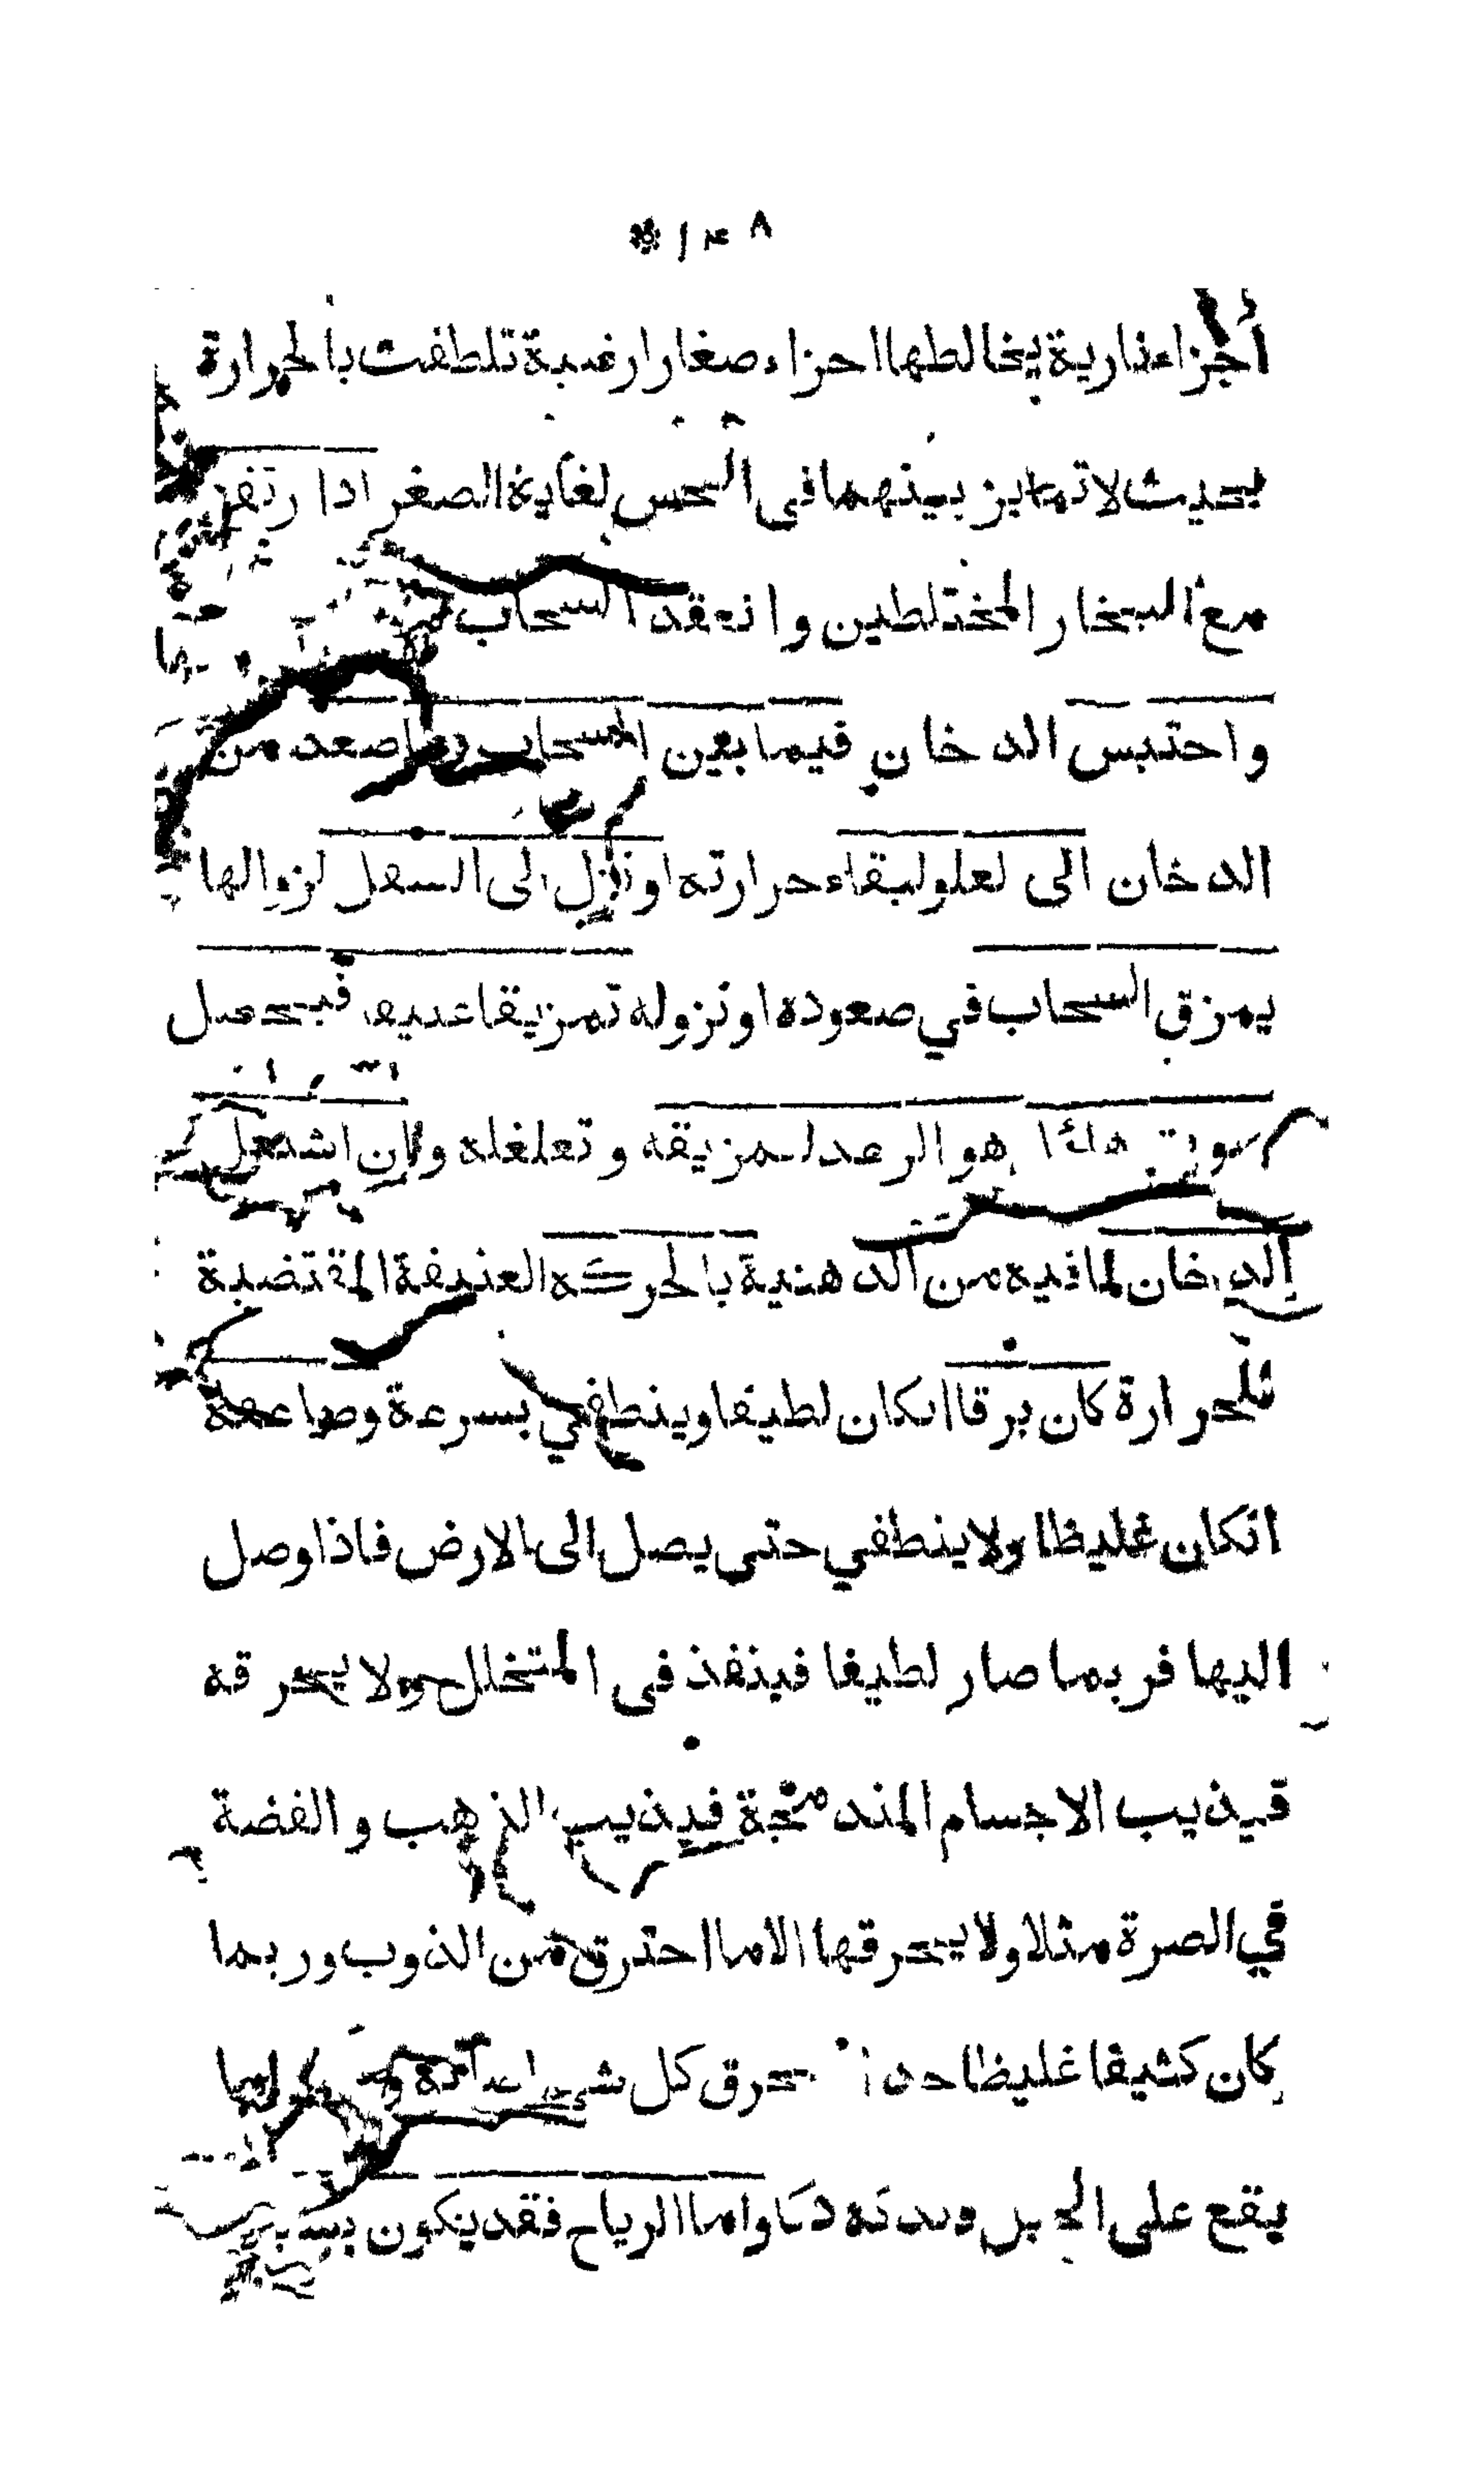 أجزاء نارية يخالطها اجزاء صغار ارضية تلطفت بالحرارة
بحيث لا تمايز بينهما في الحس لغاية الصغر اذا ارتفع
مع البخار المختلطين وانعقد السحاب
واحتبس الدخان فيما بين السحاب فما صعد من
الدخان الى لعلو لبقاء حرارته او نزل الى السفل لزوالها
يمزق السحاب في صعوده او نزوله تمزيقا عنيفا فيحصل
صوت هائل هو الرعد لتمزيقه و تغلغله وان اشتعل
الدخان لما فيه من الدهنية بالحركة العنيفة المقتضية
للحرارة كان برقا انكان لطيفا وينطفي بسرعة وصاعقة
انكان غليظا ولا ينطفي حتى يصل الى الارض فاذا وصل
اليها فربما صار لطيفا فينفذ في المتخلل ولا يحرقه
فيذيب الاجسام المندمجة فيذيب الذهب و الفضة
في الصرة مثلا ولا يحرقها الا ما احترق من الذوب وربما
كان كثيفا غليظا جدا يحرق كل شيء
يقع على الجبل دكا واما الرياح فقد يكون بسبب